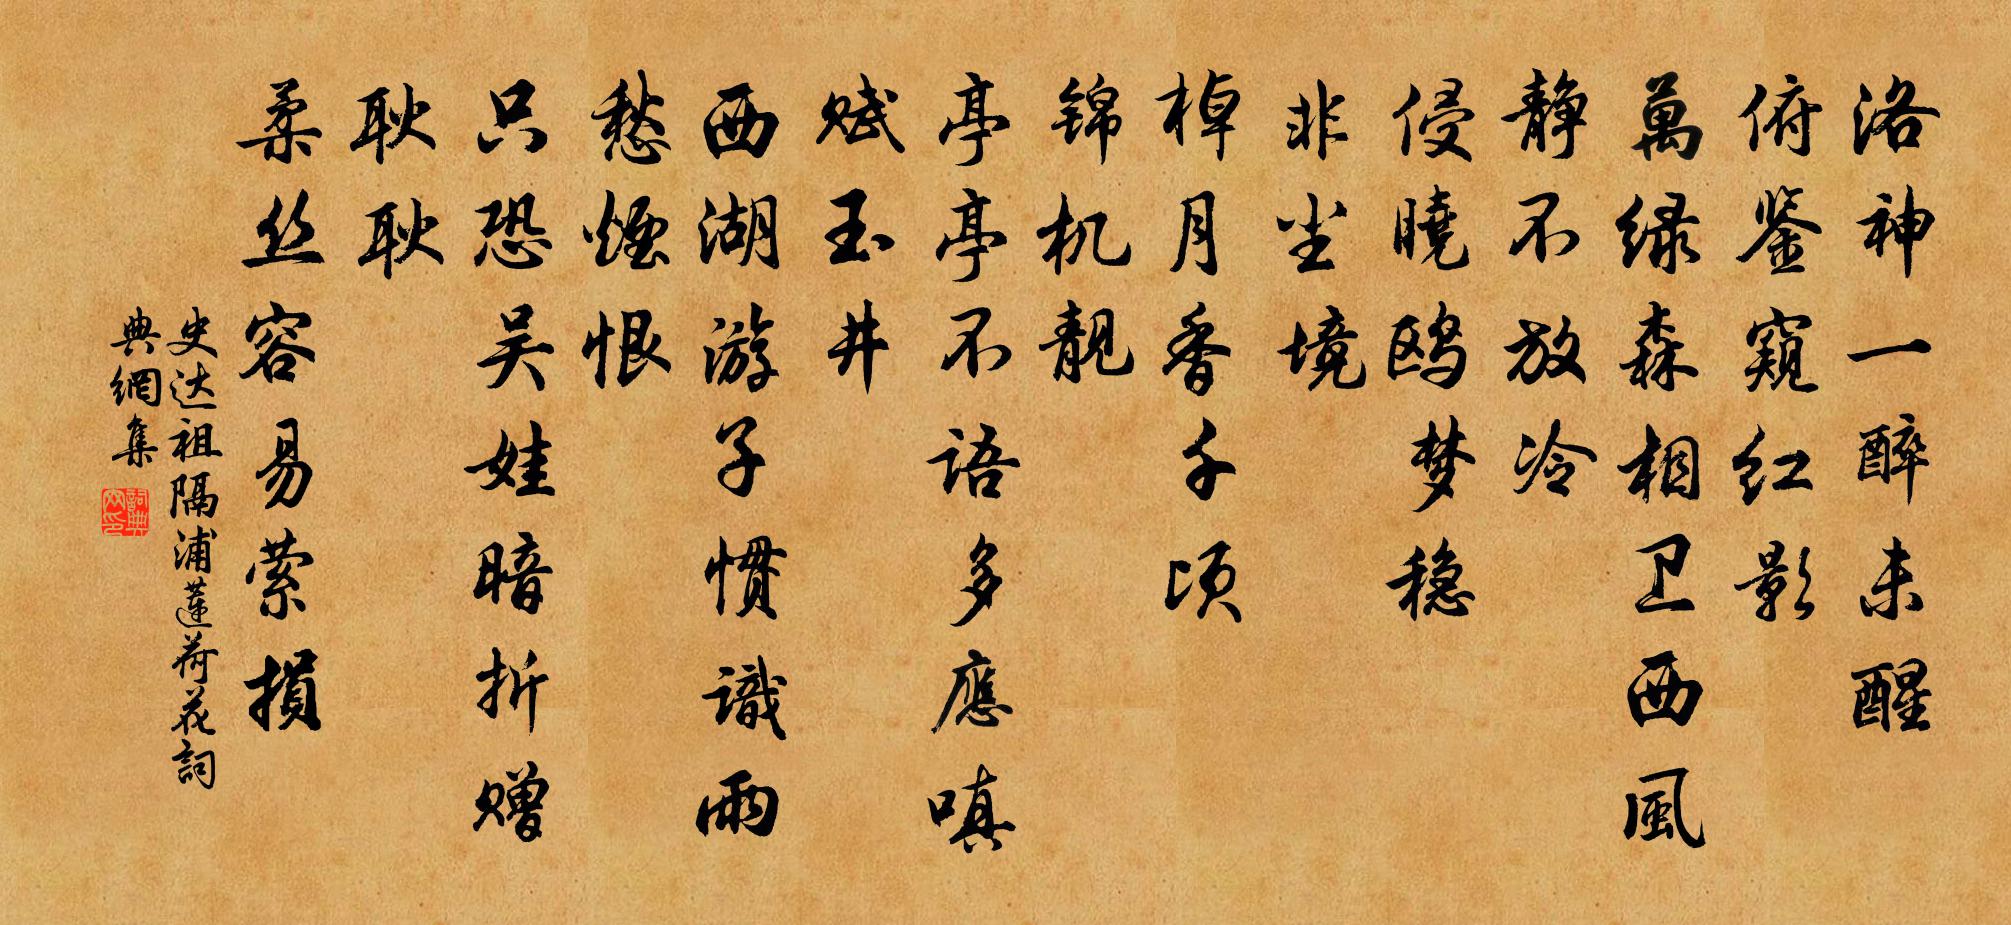 洛神一醉未醒
俯鉴窥红影
萬绿森相卫西風
静不放冷
侵曉鸥梦稳
非尘境
棹月香千顷
锦机靓
亭亭不语多應嗔
赋玉井
西湖游子慣識雨
愁煙恨
只恐吴娃暗折赠
耿耿
柔丝容易萦損
史达祖隔浦蓮荷花詞
典網集
詞典網印